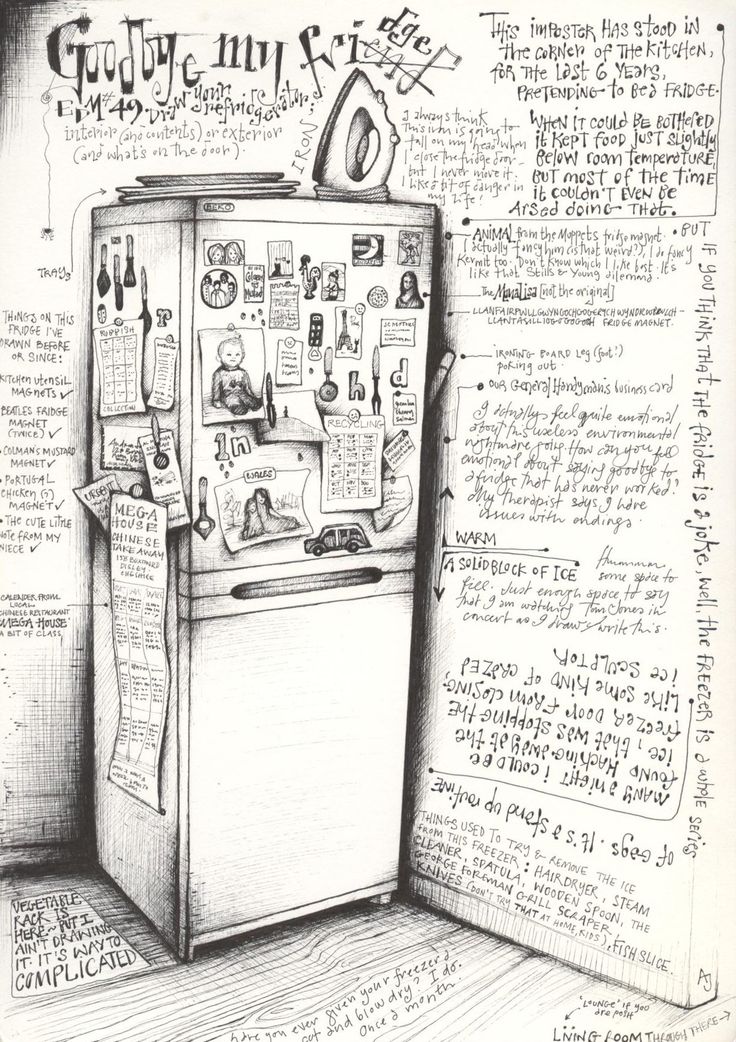 Goodbye my friend
dge
EDM #49. Draw your refridgerator;
interior (and contents) or exterior
(and what's on the door).
IRON;
I always think
this iron is going to
fall on my head when
I close the fridge door -
but I never move it.
I like a bit of danger in
my life!
This imposter has stood in
the corner of the kitchen,
for the last 6 years,
pretending to be a fridge.
When it could be bothered it
it kept food just slightly
below room temperature,
but most of the time
it couldn't even be
arsed doing that.
Trays
BEKO
Animal from the Muppets fridge magnet.
(I actually fancy him (is that weird?), I do fancy
Kermit too. Don't know which I like best. It's
like that Stills & Young dilemma.
The Mona Lisa [not the original]
fridge magnet.
Ironing board leg (foot?)
poking out.
Our General Handyman's business card
I actually feel quite emotional
about this useless environmental
nightmare going. How can you feel
emotional about saying goodbye to
a fridge that has never worked?
My therapist says I have
issues with endings.
Warm
A solid block of ice
Hummmm
some space to
fill. Just enough space to say
that I am watching Tom Jones in
concert as I draw & write this.
• But if you think that the fridge is a joke, well, the freezer is a whole series
of gags. It's a stand up routine
Many a night I could be
found hacking away at the
ice, that was stopping the
freezer door from closing,
like some kind of crazed
ice sculptor
Things on this
fridge I've
drawn before
or since:
Kitchen utensil
magnets ✓
Beatles fridge
magnet
(twice) ✓
• Colman's mustard
magnet ✓
• Portugal
chicken (?)
magnet ✓
• The cute little
note from my
niece ✓
Calender from
local
Chinese restaurant
'Mega House'
a bit of class
Rubbish
Collection
r
h
d
in
Recycling
Wales
Urgent
Mega
House
Chinese
Takeaway
Disley
Cheshire
Things used to try & remove the ice
from this freezer: hairdryer, steam
cleaner, spatula, wooden spoon, the
George Foreman grill scraper,
knives (don't try that at home, kids), fish slice.
Vegetable
rack is
here - but I
ain't drawing
it. It's way to
complicated
Have you ever given your freezer a
cut and blow dry? I do.
Once a month.
AJ
'Lounge' if you
are posh
Living room through there →